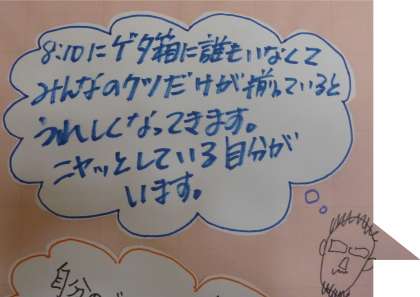 8:10にゲタ箱に誰もいなくて
みんなのクツだけが揃っていると
うれしくなってきます。
ニヤッとしている自分が
います。
自分の